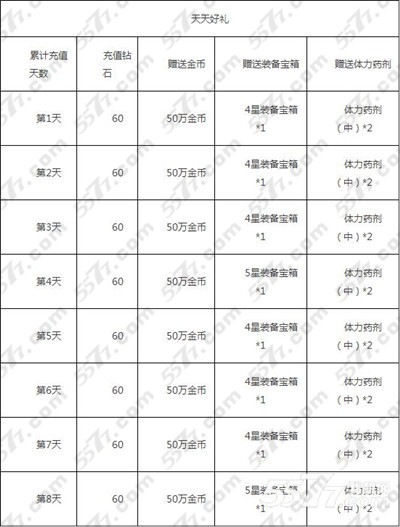 天天好礼
累计充值 充值钻 赠送金币 赠送装备宝箱 赠送体力药剂
天数 石
第1天 60 50万金币 4星装备宝箱 体力药剂
*1 （中）*2
第2天 60 50万金币 4星装备宝箱 体力药剂
*1 （中）*2
第3天 60 50万金币 4星装备宝箱 体力药剂
*1 （中）*2
第4天 60 50万金币 5星装备宝箱 体力药剂
*1 （中）*2
第5天 60 50万金币 4星装备宝箱 体力药剂
*1 （中）*2
第6天 60 50万金币 4星装备宝箱 体力药剂
*1 （中）*2
第7天 60 50万金币 4星装备宝箱 体力药剂
*1 （中）*2
第8天 60 50万金币 5星装备宝箱 体力药剂
*1 （中）*2
5577.com